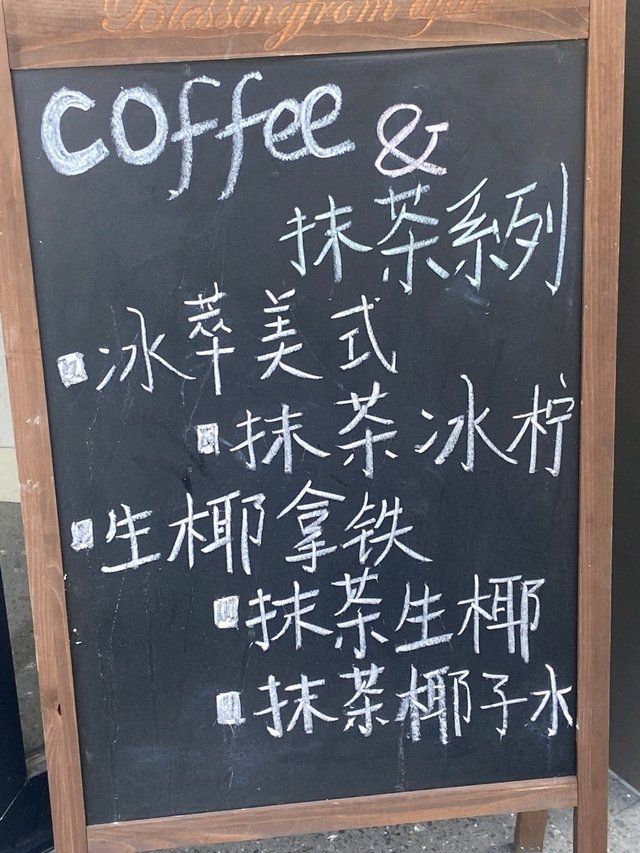 Blessingfrom
coffee &
抹茶系列
冰萃美式
抹茶冰柠
生椰拿铁
抹茶生椰
抹茶椰子水